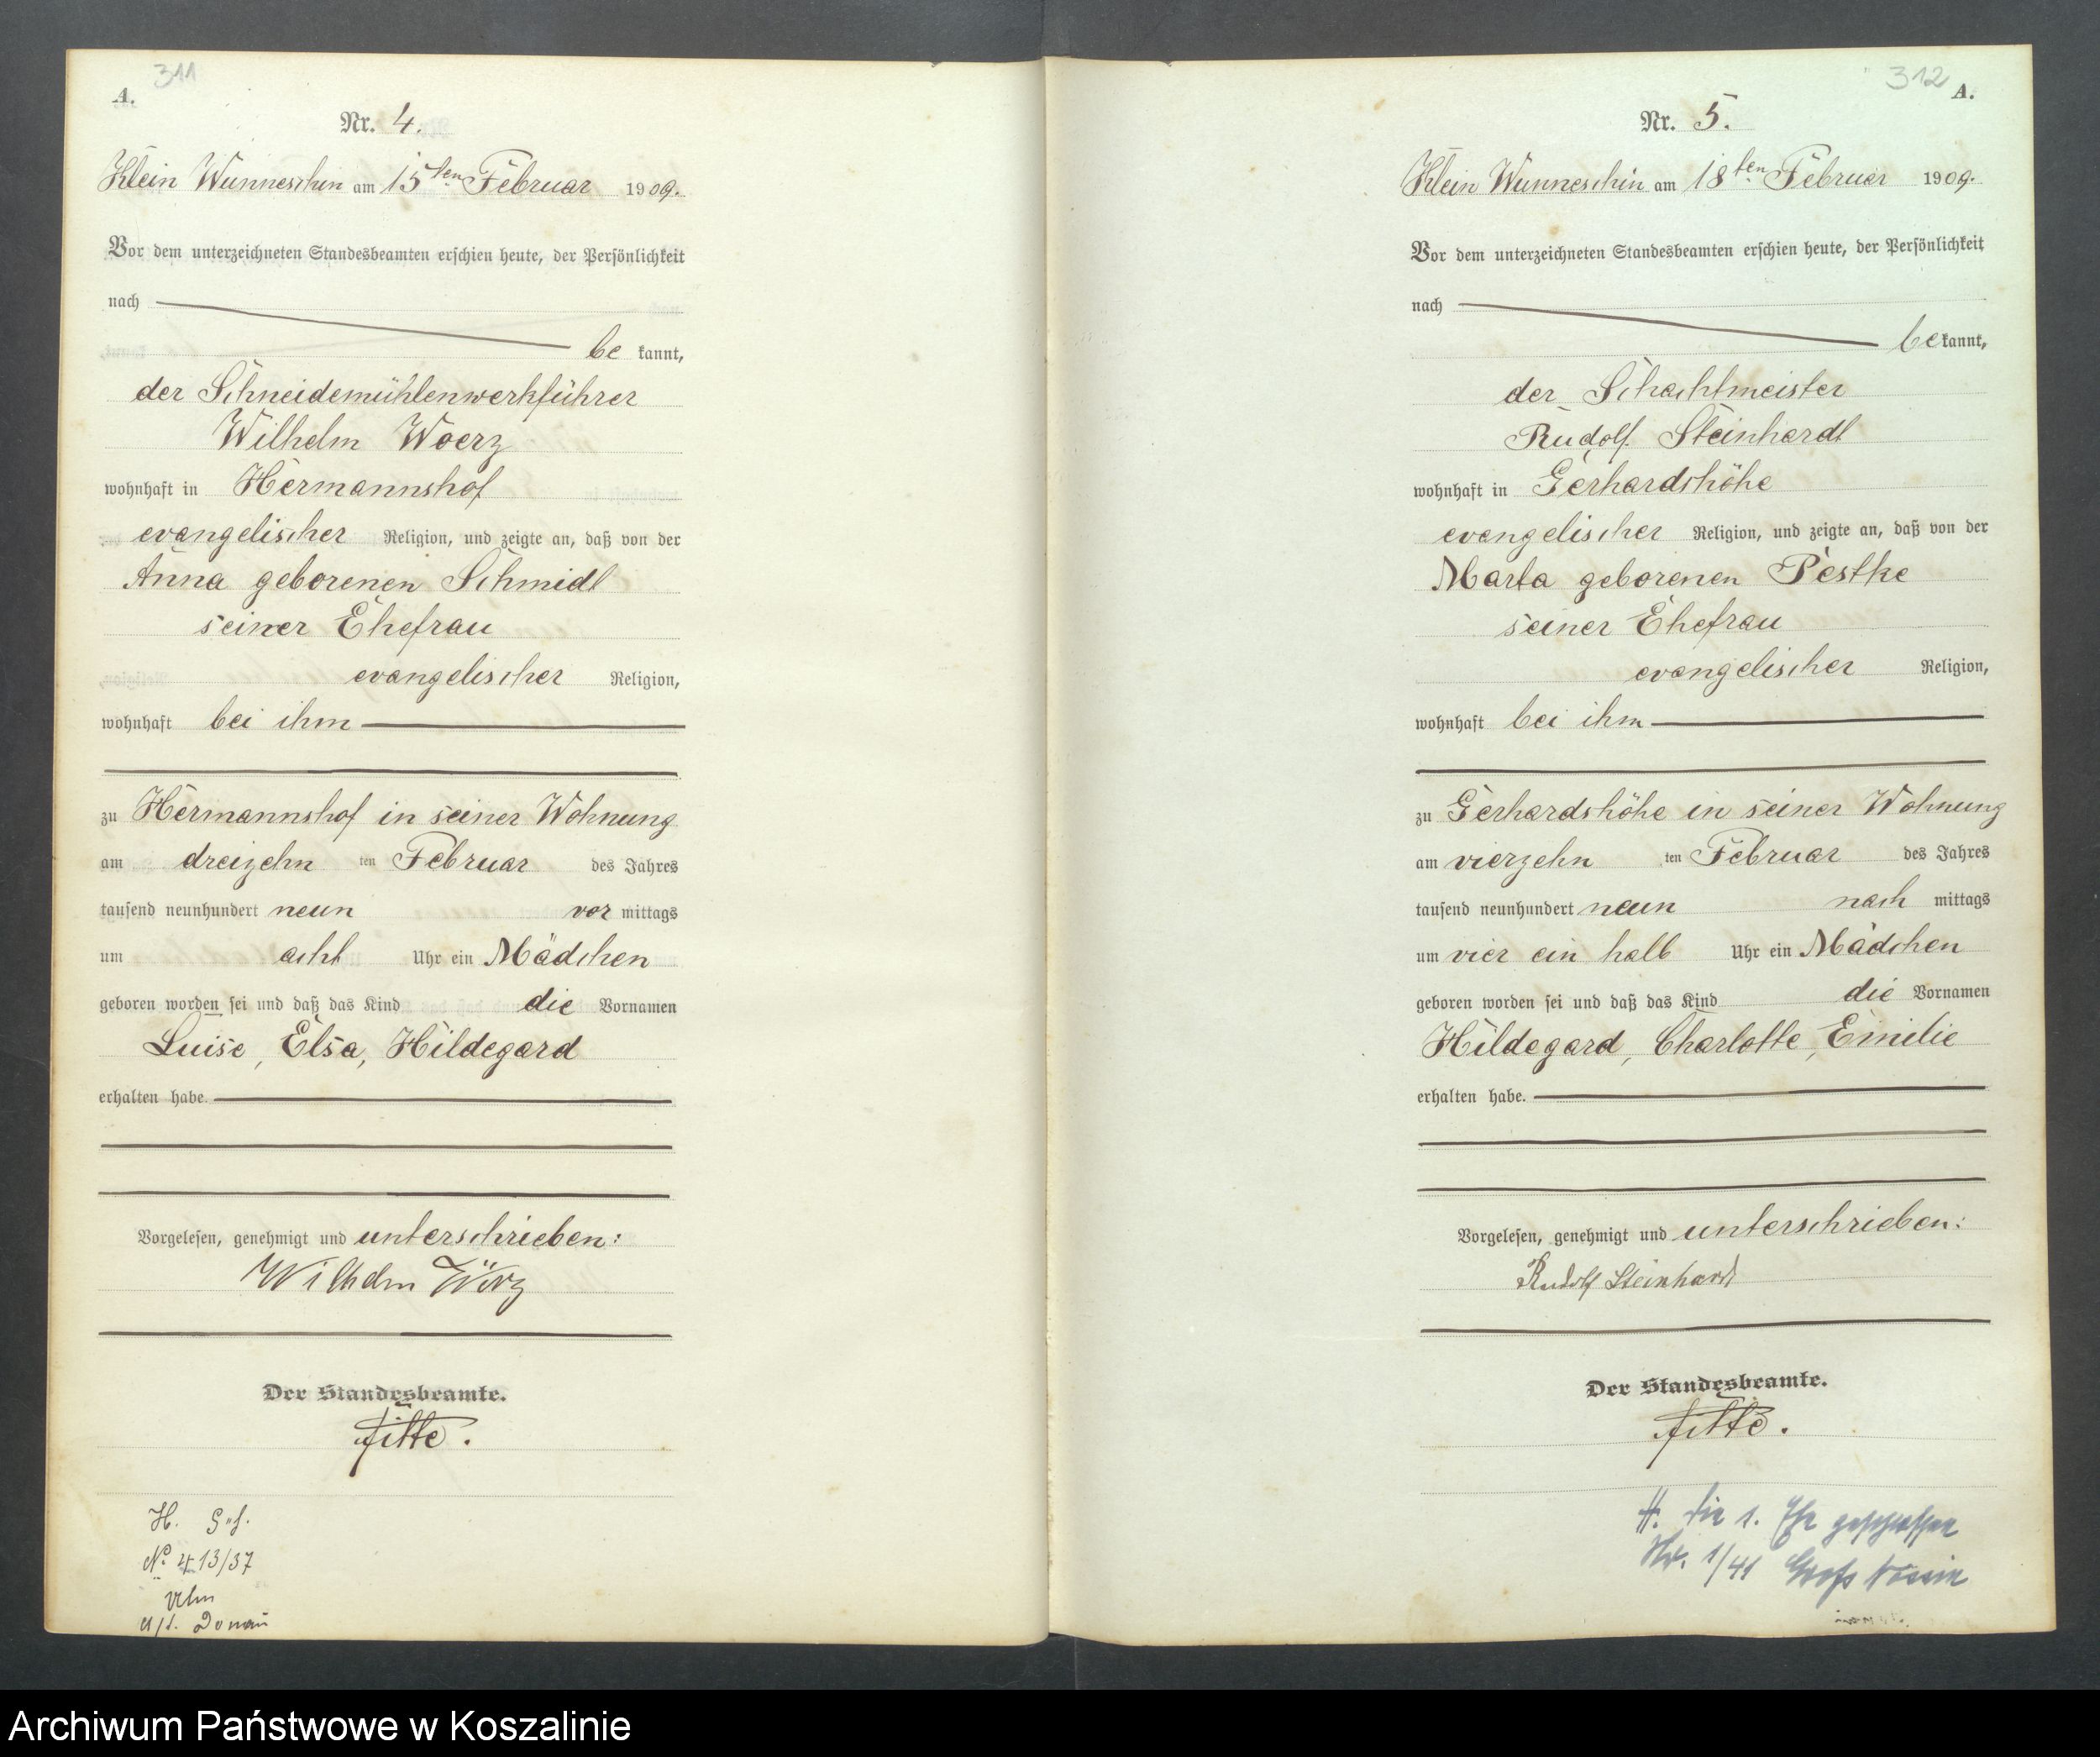 311
A.
Nr. 4.
Klein Wunneschin am 15ten Februar 1909.
Vor dem unterzeichneten Standesbeamten erschien heute, der Persönlichkeit
nach
be kannt,
der Schneidemühlenwerkführer
Wilhelm Woerz
wohnhaft in Hermannshof
evangelischer Religion, und zeigte an, daß von der
Anna geborenen Schmidt
seiner Ehefrau
evangelischer Religion,
wohnhaft bei ihm
zu Hermannshof in seiner Wohnung
am dreizehn ten Februar des Jahres
tausend neunhundert neun vor mittags
um acht Uhr ein Mädchen
geboren worden sei und daß das Kind die Vornamen
Luise, Elsa, Hildegard
erhalten habe.
Vorgelesen, genehmigt und unterschrieben:
Wilhelm Wörz
Der Standesbeamte.
Fitte.
H. Gesch.
No 413/37
Ulm
a/d. Donau
312
A.
Nr. 5.
Klein Wunneschin am 18ten Februar 1909.
Vor dem unterzeichneten Standesbeamten erschien heute, der Persönlichkeit
nach
be kannt,
der Schachtmeister
Rudolf Steinhardt
wohnhaft in Gerhardshöhe
evangelischer Religion, und zeigte an, daß von der
Marta geborenen Pestke
seiner Ehefrau
evangelischer Religion,
wohnhaft bei ihm
zu Gerhardshöhe in seiner Wohnung
am vierzehn ten Februar des Jahres
tausend neunhundert neun nach mittags
um vier ein halb Uhr ein Mädchen
geboren worden sei und daß das Kind die Vornamen
Hildegard, Charlotte, Emilie
erhalten habe.
Vorgelesen, genehmigt und unterschrieben:
Rudolf Steinhardt
Der Standesbeamte.
Fitte.
H. die 1. Ehe geschlossen
Nr. 1/41 Groß Nossin
Archiwum Państwowe w Koszalinie